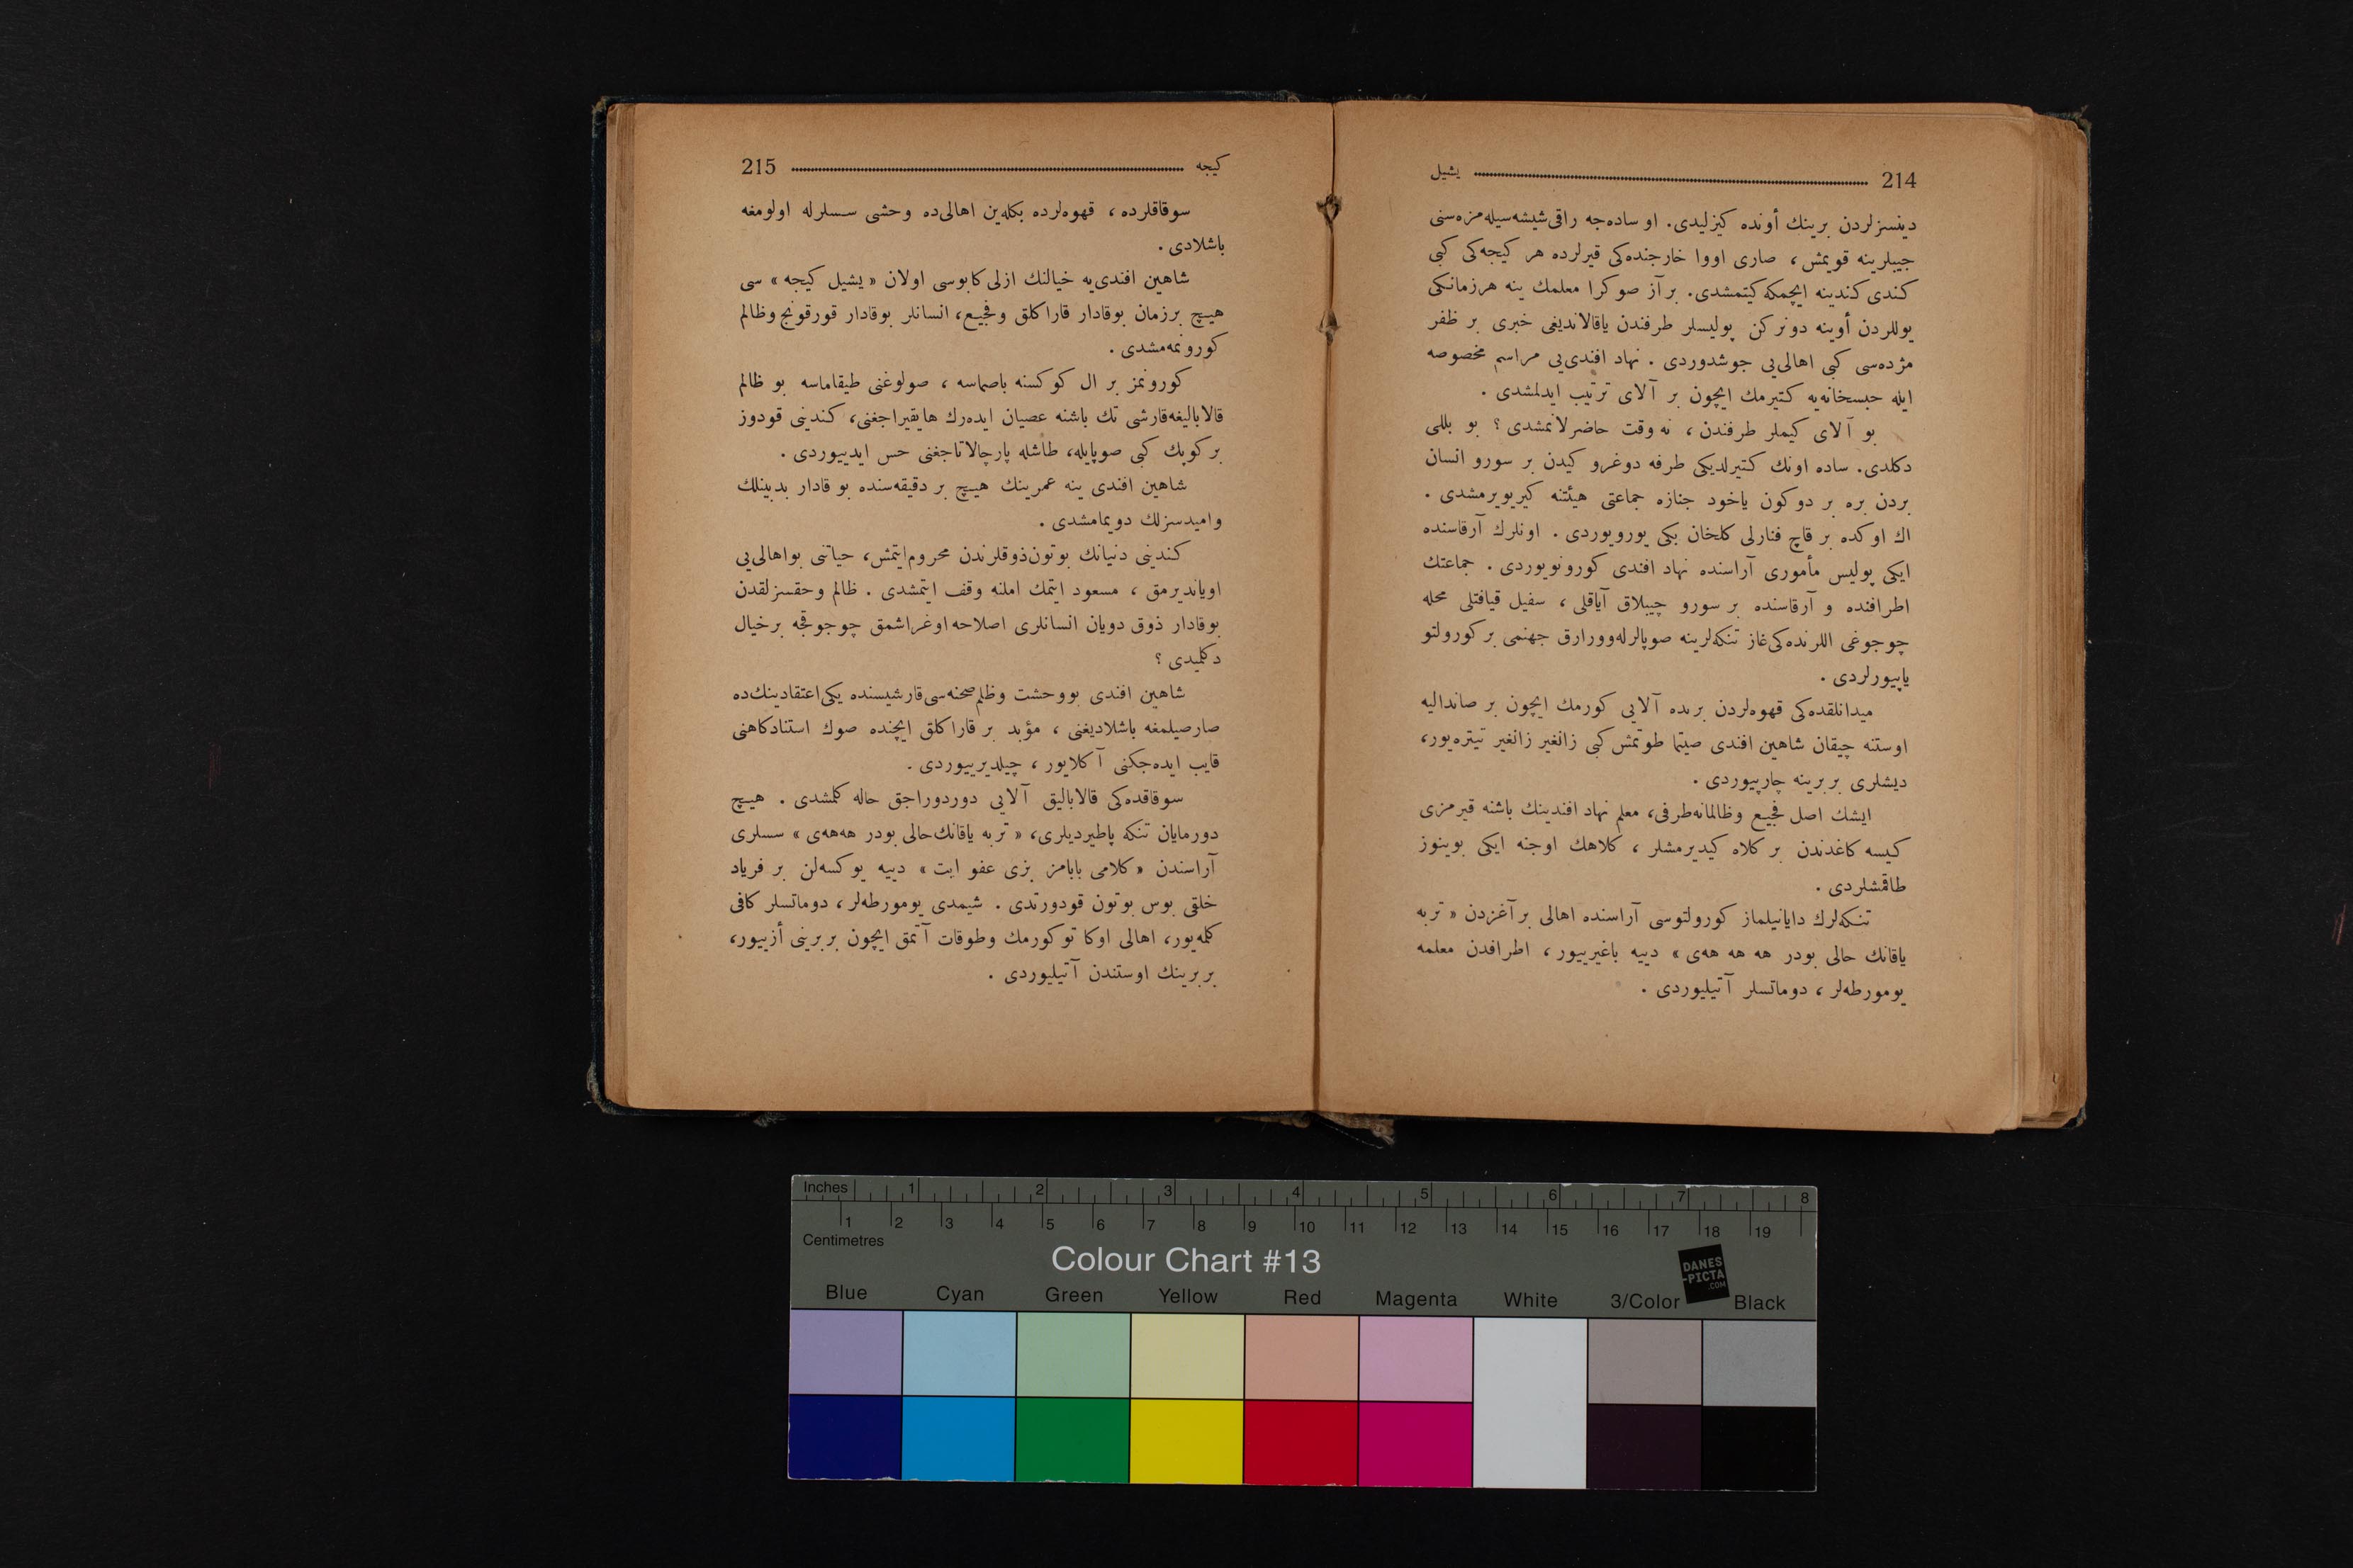 214 يشيل
دينسزلردن برينك أونده كيزليدى. او ساده‌جه راقى شيشه‌سيله مزه‌سنى
جيبلرينه قويمش ، صارى اووا خارجنده‌كى قيرلرده هر كيجه‌كى كبى
كندى كندينه ايچمكه كيتمشدى. برآز صوكرا معلمك ينه هرزمانكى
يوللردن أوينه دونركن پوليسلر طرفندن ياقالانديغى خبرى بر ظفر
مژده‌سى كبى اهالى‌يى جوشدوردى . نهاد افندى‌يى مراسم مخصوصه
ايله حبسخانه‌يه كتيرمك ايچون بر آلاى ترتيب ايدلمشدى .
بو آلاى كيملر طرفندن ، نه وقت حاضرلانمشدى ؟ بو بللى
دكلدى. ساده اونك كتيرلديكى طرفه دوغرو كيدن بر سورو انسان
بردن بره بر دوكون ياخود جنازه جماعتى هيئتنه كيريويرمشدى .
اك اوكده بر قاچ فنارلى كلخان بكى يورويوردى . اونلرك آرقاسنده
ايكى پوليس مأمورى آراسنده نهاد افندى كورونويوردى . جماعتك
اطرافنده و آرقاسنده بر سورو چيپلاق آياقلى ، سفيل قيافتلى محله
چوجوغى اللرنده‌كى غاز تنكه‌لرينه صوپالرله‌وورارق جهنمى بر كورولتو
ياپييورلردى .
ميدانلقده‌كى قهوه‌لردن برنده آلايى كورمك ايچون بر صانداليه
اوستنه چيقان شاهين افندى صيتما طوتمش كبى زانغير زانغير تيتره‌يور،
ديشلرى بربرينه چارپييوردى .
ايشك اصل فجيع وظالمانه‌طرفى، معلم نهاد افندينك باشنه قيرمزى
كيسه كاغدندن بر كلاه كيديرمشلر ، كلاهك اوجنه ايكى بوينوز
طاقمشلردى .
تنكه‌لرك دايانيلماز كورولتوسى آراسنده اهالى بر آغزدن « تربه
ياقانك حالى بودر هه هه هه‌ى » دييه باغيرييور ، اطرافدن معلمه
يومورطه‌لر ، دوماتسلر آتيليوردى .
كيجه 215
سوقاقلرده ، قهوه‌لرده بكله‌ين اهالى‌ده وحشى سسلرله اولومغه
باشلادى .
شاهين افندى‌يه خيالنك ازلى كابوسى اولان « يشيل كيجه » سى
هيچ برزمان بوقادار قاراكلق وفجيع، انسانلر بوقادار قورقونج وظالم
كورونمه‌مشدى .
كورونمز بر ال كوكسنه باصماسه ، صولوغنى طيقاماسه بو ظالم
قالاباليغه‌قارشى تك باشنه عصيان ايده‌رك هايقيراجغنى، كندينى قودوز
بر كوپك كبى صوپايله، طاشله پارچالاتاجغنى حس ايدييوردى .
شاهين افندى ينه عمرينك هيچ بر دقيقه‌سنده بو قادار بدبينلك
واميدسزلك دويمامشدى .
كندينى دنيانك بوتون‌ذوقلرندن محروم‌ايتمش، حياتنى بواهالى‌يى
اوياندیرمق ، مسعود ايتمك املنه وقف ايتمشدى . ظالم وحقسزلقدن
بوقادار ذوق دويان انسانلرى اصلاحه اوغراشمق چوجوقجه برخيال
دكلميدى ؟
شاهين افندى بووحشت وظلم صحنه‌سى قارشيسنده يكى اعتقادينك‌ده
صارصيلمغه باشلاديغنى ، مؤبد بر قاراكلق ايچنده صوك استنادكاهنى
قايب ايده‌جكنى آكلايور ، چيلديرييوردى .
سوقاقده‌كى قالاباليق آلايى دوردوراجق حاله كلمشدى . هيچ
دورمايان تنكه پاطيرديلرى، « تربه ياقانك‌حالى بودر هه‌هه‌ى » سسلرى
آراسندن « كلامى بابامز بزى عفو ايت » دييه يوكسه‌لن بر فرياد
خلقى بوس بوتون قودورتدى . شيمدى يومورطه‌لر ، دوماتسلر كافى
كلمه‌يور، اهالى اوكا توكورمك وطوقات آتمق ايچون بربرينى أزييور،
بربرينك اوستندن آتيليوردى .
Inches 1 2 3 4 5 6 7 8
1 2 3 4 5 6 7 8 9 10 11 12 13 14 15 16 17 18 19
Centimetres
Colour Chart #13
DANES
-PICTA
.COM
Blue Cyan Green Yellow Red Magenta White 3/Color Black